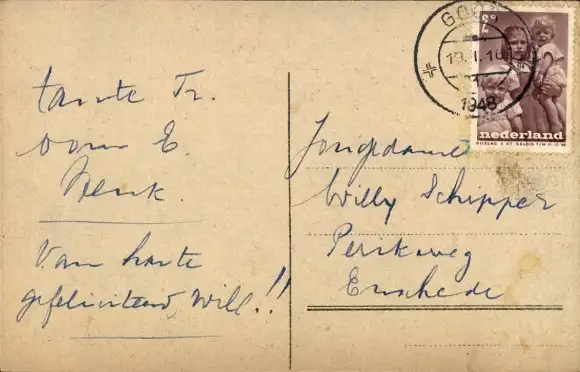 tante Tr.
oom E.
Henk.
Van harte
gefeliciteerd, Will!!
19.1.16
1948
nederland
Jongedame
Willy Schipper
Perikweg
Enschede